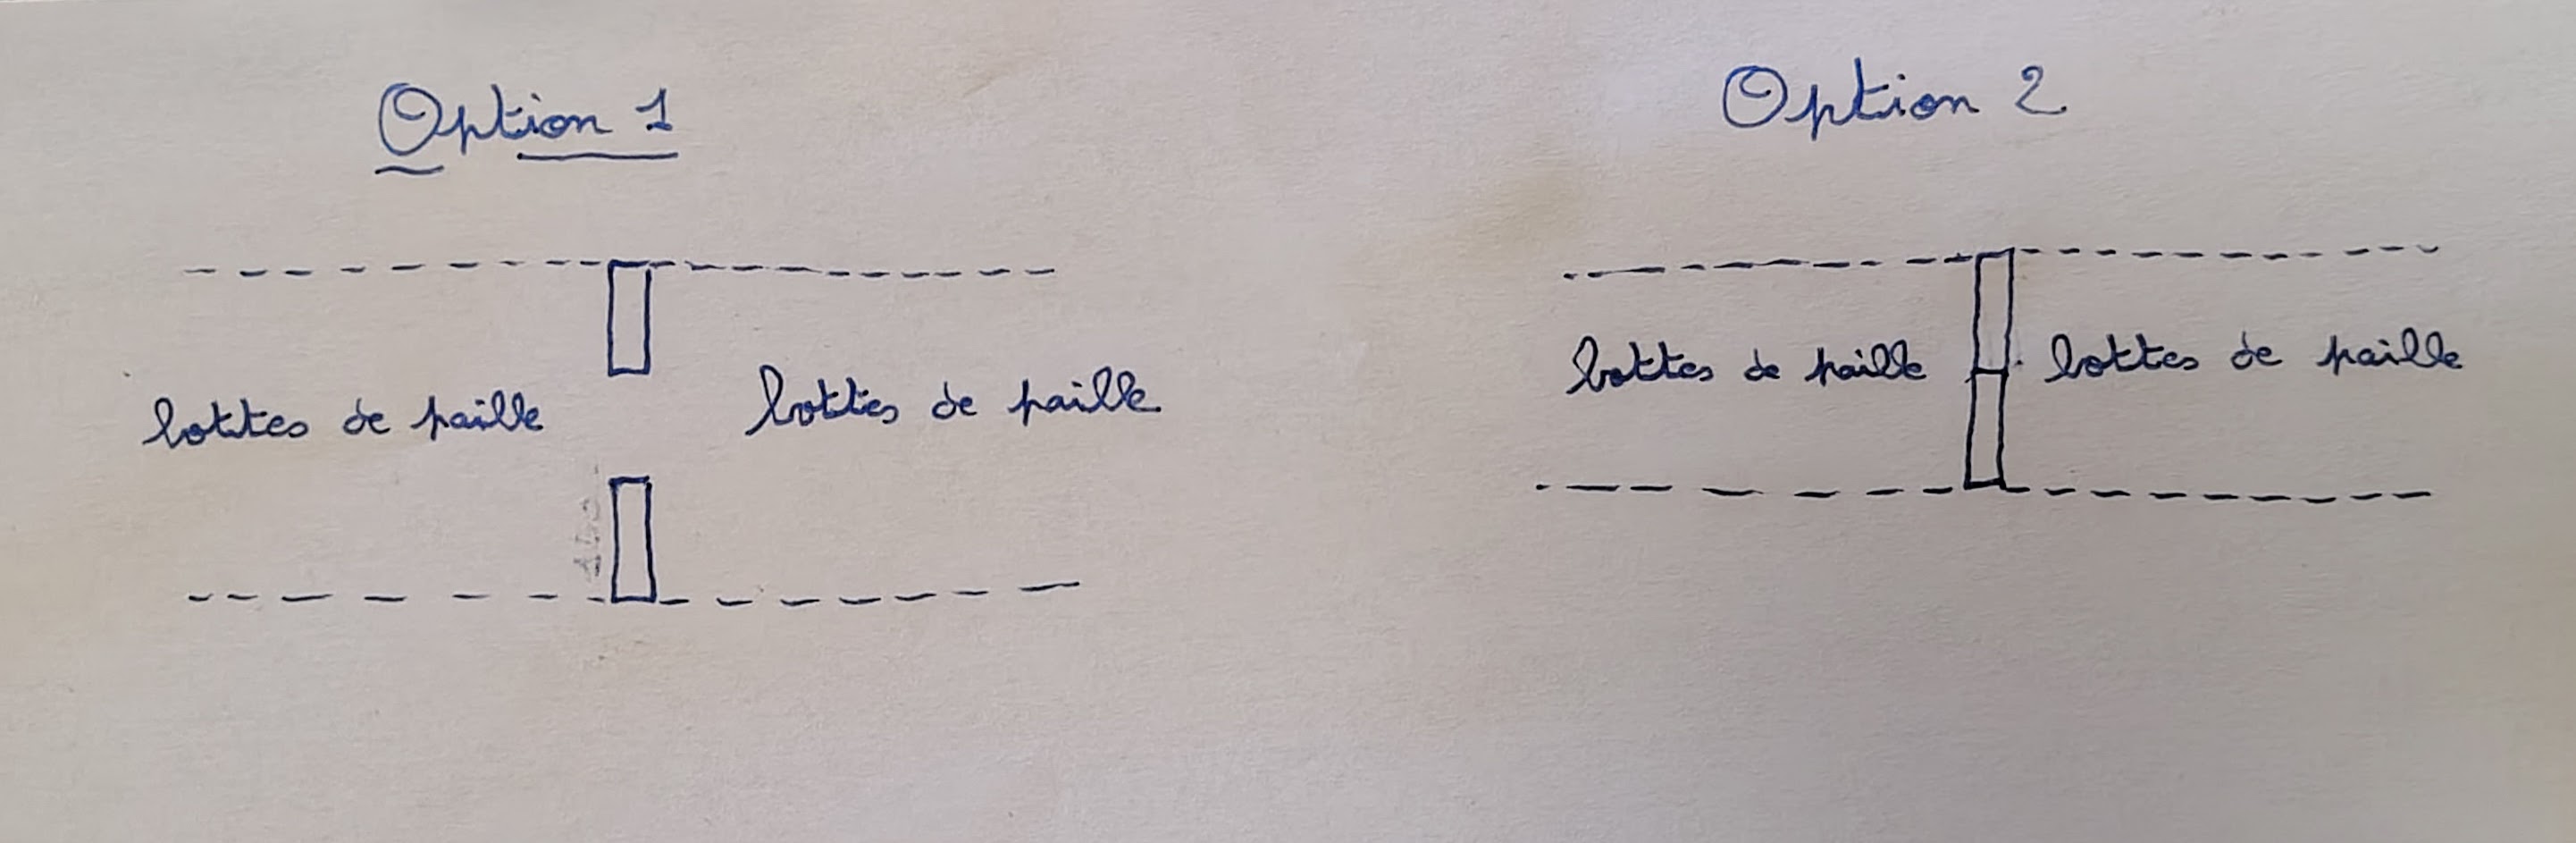 Option 1
Option 2
bottes de paille
bottes de paille
bottes de paille
bottes de paille